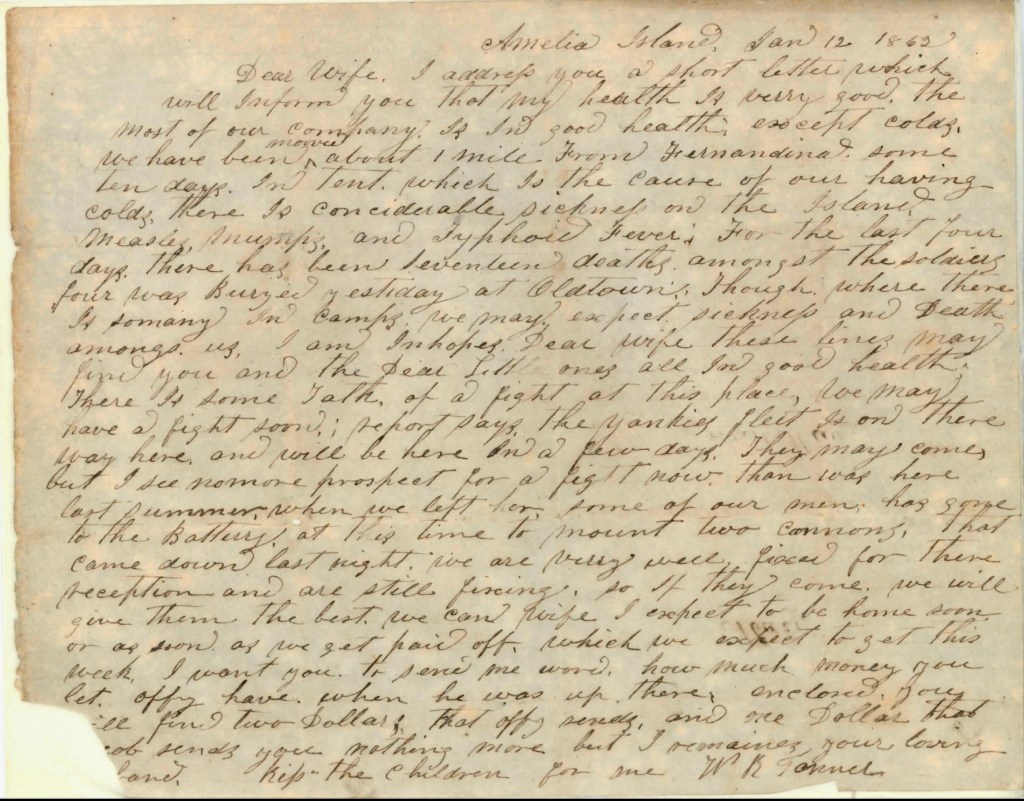 Amelia Island, Jan 12 1862
Dear Wife. I address you a short letter which
will Inform you that my health Is verry good. the
most of our company. Is In good health; except colds.
we have been moovd about 1 mile From Fernandina. some
ten days. In Tent. which Is the cause of our having
colds, there Is conciderable sickness on the Island,
Measles, Mumps, and Typhoid Fever; For the last four
days. there has been seventeen deaths amongst the soldiers
four was Buryed yestiday at Oldtown; Though. where there
Is somany In camps. we may. expect sickness and Death
amongs. us, I am Inhopes Dear wife these lines may
find you and the Dear Little ones all In good health.
There Is some Talk, of a fight at this place, we may
have a fight soon; report says the yankies fleet Is on there
way here. and will be here In a few days. They may come,
but I see nomore prospect for a fight now. than was here
last summer, when we left hor, some of our men; has gone
to the Battery, at this time to mount two cannons, that
came down last night; we are verry well fixed for there
reception and are still fixcing; so If they come. we will
give them the best we can wife I expect to be home soon
or as soon as we get paid off. which we expect to get this
week, I want you to send me word, how much money you
let. offy have when he was up there; enclosed. you
ill find two Dollars, that offy sends, and one Dollar that
cob sends you nothing more but I remaines your loving
band. Kiss the Children for me W R Tanner